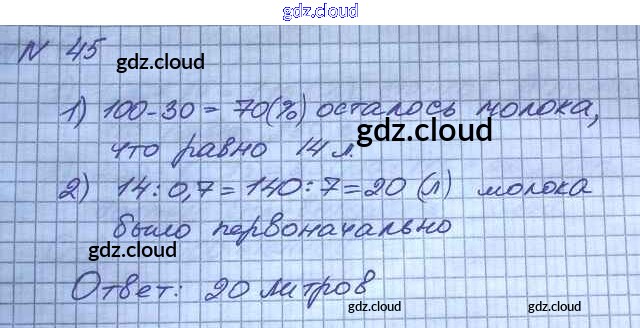 gdz.cloud
N 45
gdz.cloud
1) 100-30 = 70(%) осталось молока,
gdz.cloud
что равно 14 л.
2) 14 : 0,7 = 140 : 7 = 20 (л) молока
было первоначально
gdz.cloud
gdz.cloud
Ответ: 20 литров
gdz.cloud
gdz.cloud